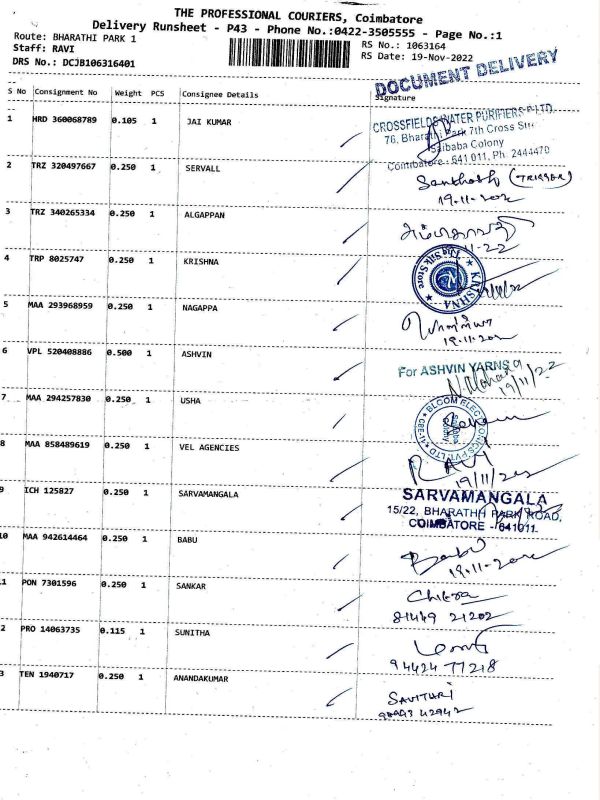 THE PROFESSIONAL COURIERS, Coimbatore
Delivery Runsheet - P43 - Phone No.:0422-3505555 - Page No.:1
Route: BHARATHI PARK 1
Staff: RAVI
DRS No.: DCJB106316401
RS No.: 1063164
RS Date: 19-Nov-2022
DOCUMENT DELIVERY
S No Consignment No Weight PCS Consignee Details Signature
1 HRD 360068789 0.105 1 JAI KUMAR
CROSSFIELDS WATER PURIFIERS P LTD.
76, Bharathi Park 7th Cross
Saibaba Colony
Coimbatore - 641 011, Ph 2444470
2 TRZ 320497667 0.250 1 SERVALL
Santhosh (TRIGGER)
19.11.202
3 TRZ 340265334 0.250 1 ALGAPPAN
11-22
4 TRP 8025747 0.250 1 KRISHNA
KRISHNA
The Silk Store
5 MAA 293968959 0.250 1 NAGAPPA
19.11.202
6 VPL 520408886 0.500 1 ASHVIN
For ASHVIN YARNS
19/11/22
7 MAA 294257830 0.250 1 USHA
BLOOM ELECTRONICS PVT LTD
8 MAA 858489619 0.250 1 VEL AGENCIES
RAVI
19/11/202
9 ICH 125827 0.250 1 SARVAMANGALA
SARVAMANGALA
15/22, BHARATHI PARK ROAD,
COIMBATORE - 641011.
10 MAA 942614464 0.250 1 BABU
Babu
19.11.202
1 PON 7301596 0.250 1 SANKAR
Chitra
81449 21202
2 PRO 14063735 0.115 1 SUNITHA
94424 77218
3 TEN 1940717 0.250 1 ANANDAKUMAR
SAVITHRI
42942